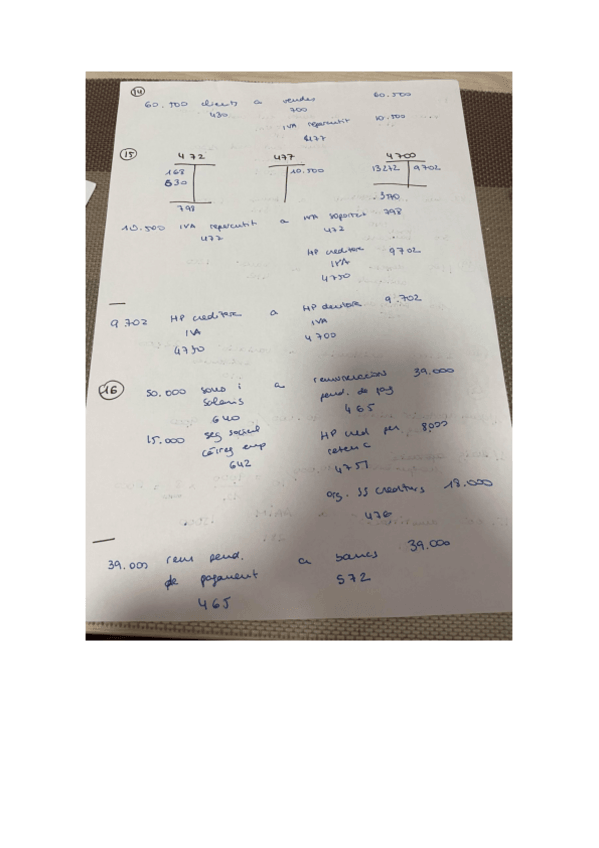 14
60.500 clients a vendes 60.500
430 700
IVA repercutit 10.500
477
15
472 477 4700
168 10.500 13272 9702
630
798 3570
10.500 IVA repercutit a IVA soportat 798
477 472
HP creditora 9702
IVA
4750
9.702 HP creditora a HP deutora 9.702
IVA IVA
4750 4700
16
50.000 sous i a remuneracions 39.000
salaris pend. de pag
640 465
15.000 seg social HP cred per 8000
càrreg emp retenc
642 4751
org. SS creditors 18.000
476
39.000 rem pend. a bancs 39.000
de pagament 572
465